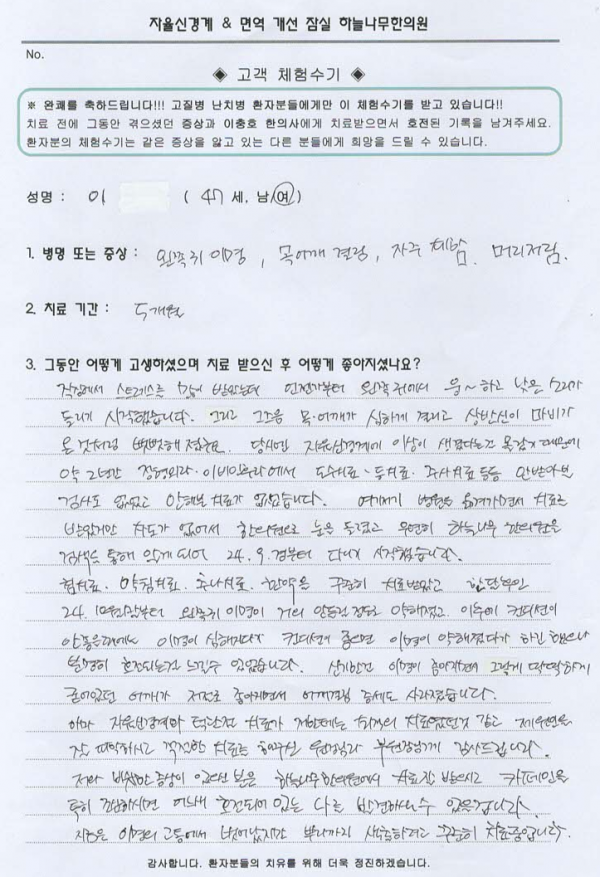 자율신경계 & 면역 개선 잠실 하늘나무한의원
No.
◈ 고객 체험수기 ◈
※ 완쾌를 축하드립니다!!! 고질병 난치병 환자분들에게만 이 체험수기를 받고 있습니다!!
치료 전에 그동안 겪으셨던 증상과 이충호 한의사에게 치료받으면서 호전된 기록을 남겨주세요.
환자분의 체험수기는 같은 증상을 앓고 있는 다른 분들에게 희망을 드릴 수 있습니다.
성명 : 이 ( 47 세, 남/여 )
1. 병명 또는 증상 : 왼쪽귀 이명, 목어깨 결림, 자주 체함, 머리저림.
2. 치료 기간 : 5개월
3. 그동안 어떻게 고생하셨으며 치료 받으신 후 어떻게 좋아지셨나요?
직장에서 스트레스를 많이 받았는데 언젠가부터 왼쪽귀에서 웅~하고 낮은 소리가
들리기 시작했습니다. 그리고 그즈음 목·어깨가 심하게 결리고 상반신이 마비가
온것처럼 뻣뻣해졌구요. 당시엔 자율신경계에 이상이 생겼다는건 몰랐기 때문에
약 2년간 정형외과·이비인후과에서 도수치료· 주사치료 등등 안받아본
검사도 없었고 안해본 치료가 없었습니다. 여기저기 병원을 옮겨가면서 치료를
받았지만 차도가 없어서 한의원으로 눈을 돌렸고 우연히 하늘나무 한의원을
검색을 통해 알게되어 24. 9.경부터 다니기 시작했습니다.
침치료· 약침치료· 추나치료· 한약을 꾸준히 치료받았고 한달후인
24. 10월말부터 왼쪽귀 이명이 거의 안들릴 정도로 약해졌고. 이후에 컨디션이
안좋을때에는 이명이 심해지다가 컨디션이 좋으면 이명이 약해졌다가 하긴 했으나
분명히 호전되는건 느낄수 있었습니다. 신기한건 이명이 좋아지면서 그렇게 딱딱하게
굳어있던 어깨가 저절로 좋아지면서 어깨결림 증세도 사라졌습니다.
아마 자율신경계와 턱관절 치료가 저한테는 최적의 치료였던것 같고 제원인을
잘 파악하시고 적절한 치료를 해주신 원장님과 부원장님께 감사드립니다.
저와 비슷한 증상이 있으신 분은 하늘나무한의원에서 치료 잘 받으시고 카페인을
특히 조심하시면 어느새 호전되어 있는 나를 발견하실수 있을겁니다.
지금은 이명의 고통에서 벗어났지만 뿌리까지 하려고 꾸준히 치료중입니다.
감사합니다. 환자분들의 치유를 위해 더욱 정진하겠습니다.